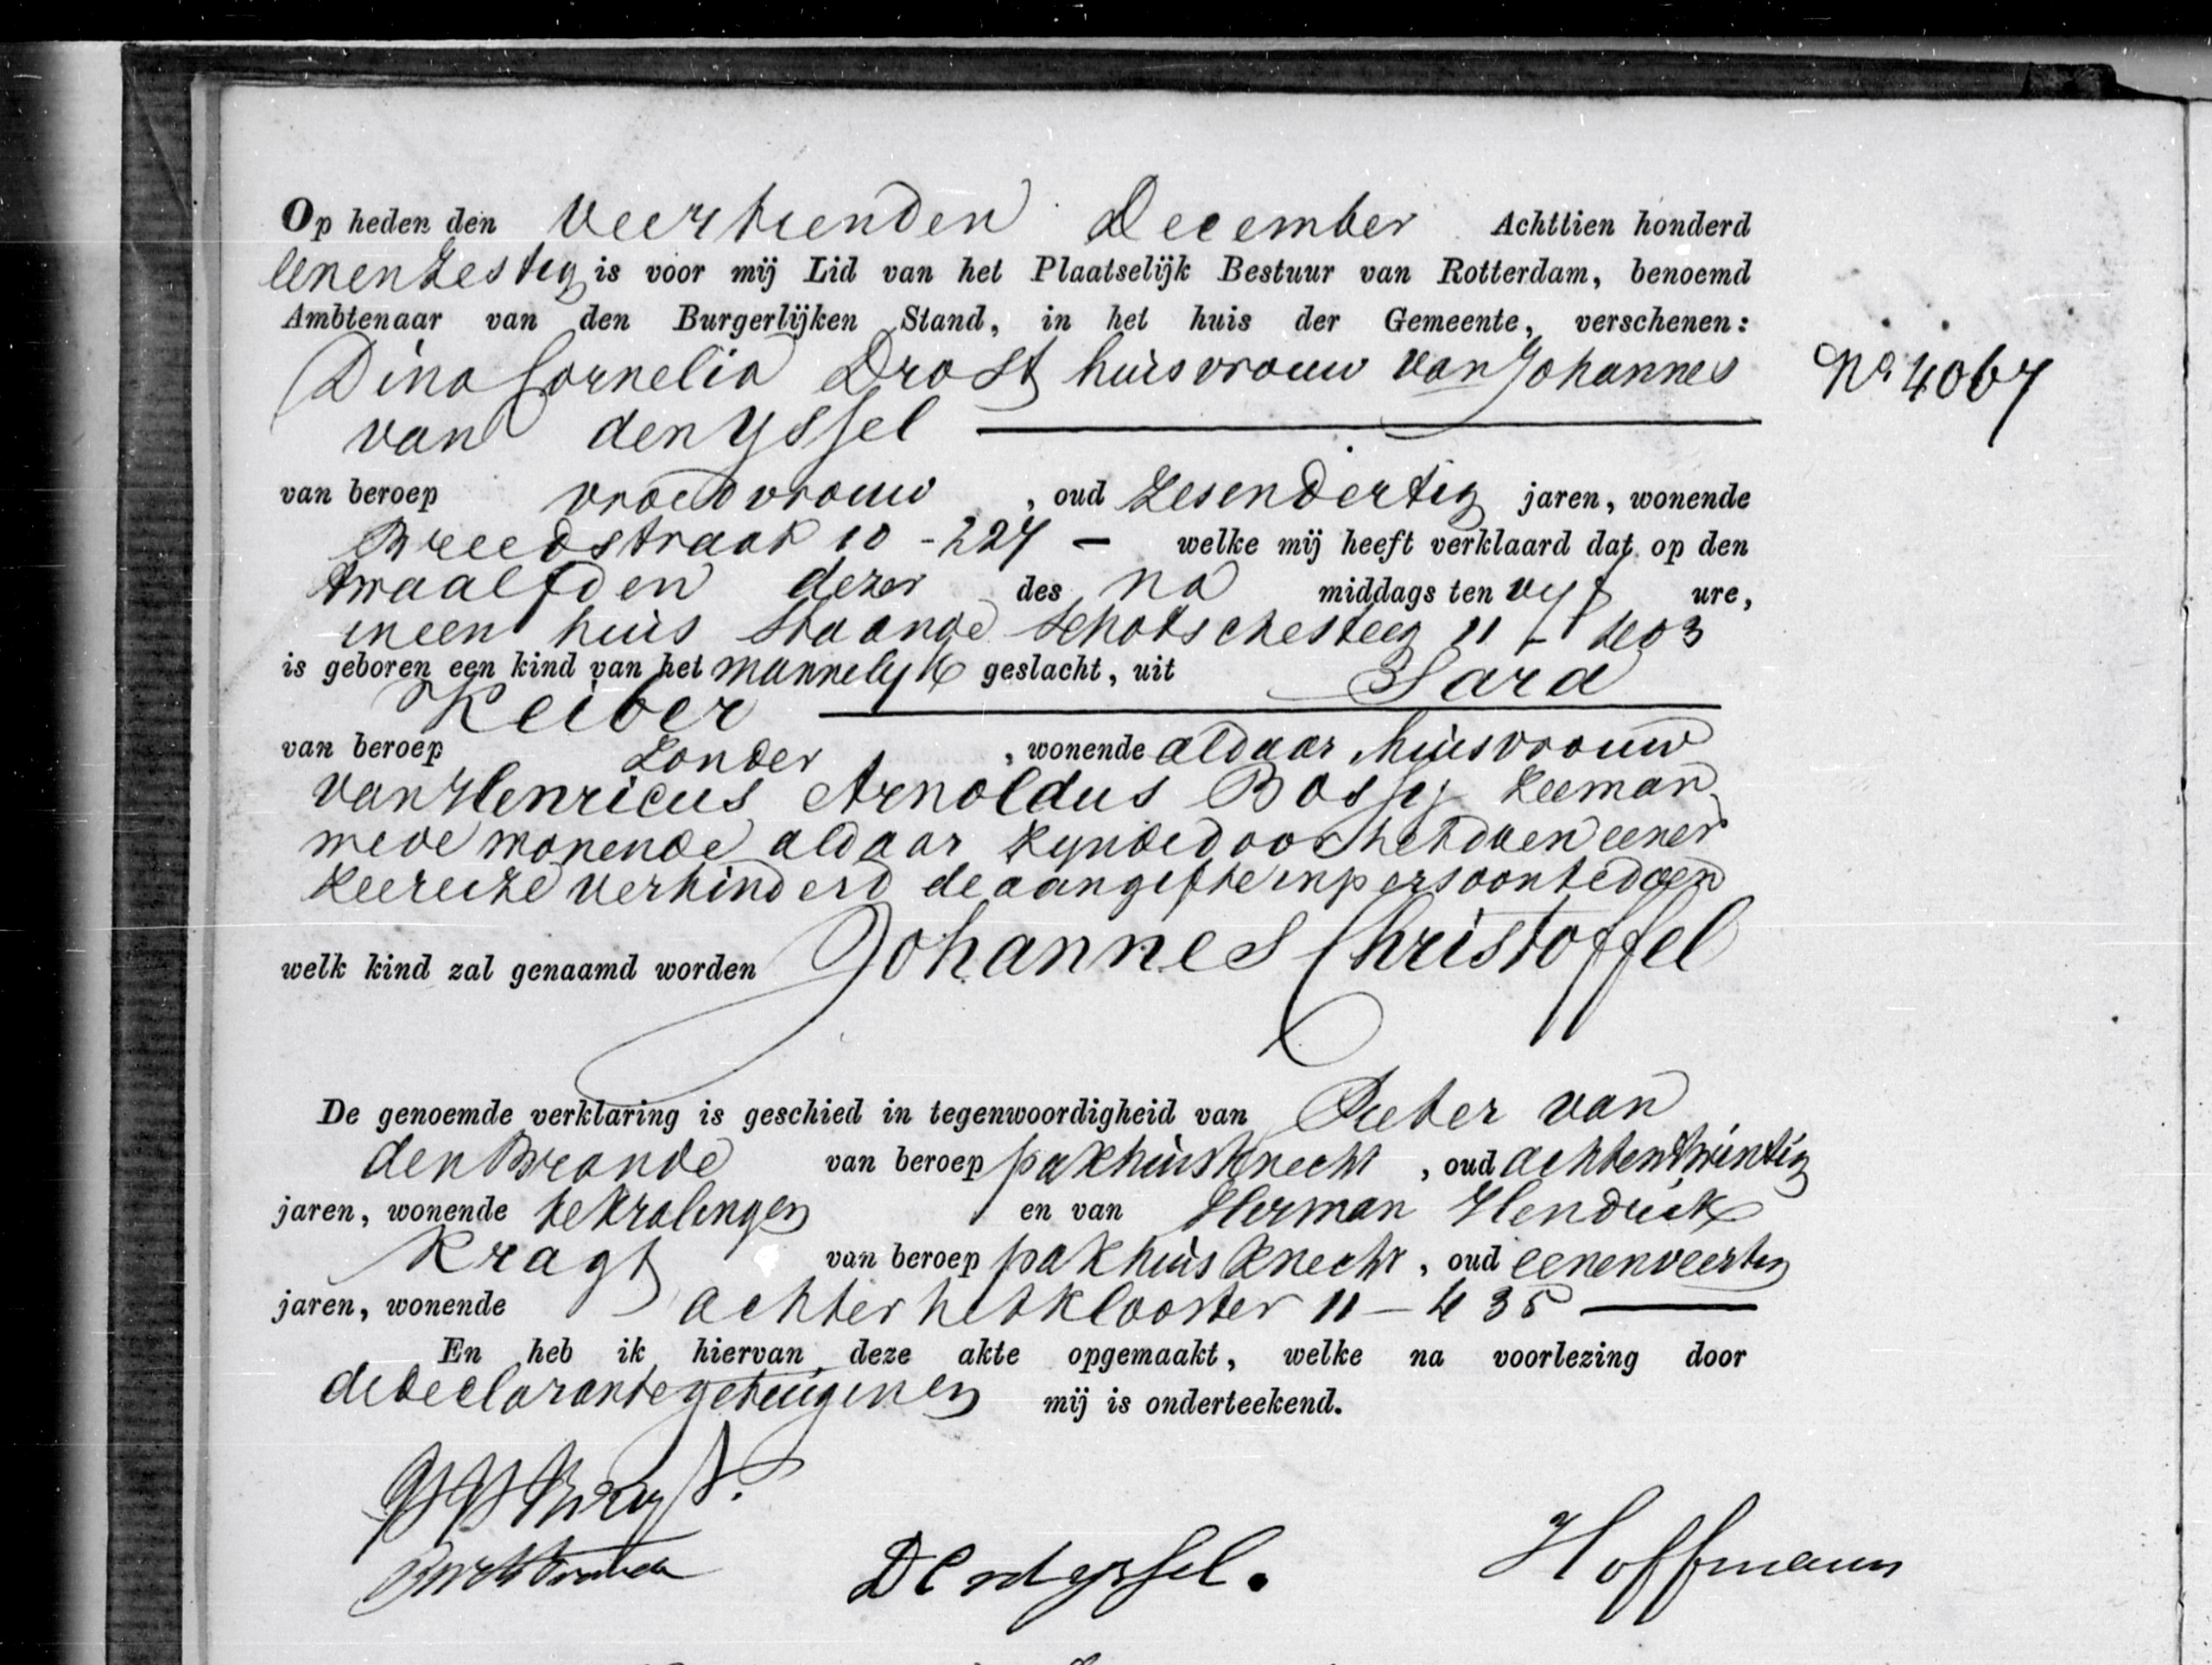 Op heden den Veertienden December Achttien honderd
eenenzestig is voor mij Lid van het Plaatselijk Bestuur van Rotterdam, benoemd
Ambtenaar van den Burgerlijken Stand, in het huis der Gemeente, verschenen:
Dina Cornelia Drost huisvrouw van Johannes
Nº 4067
van den Yssel
van beroep vroedvrouw, oud zesendertig jaren, wonende
Breedstraat 10 - 227 — welke mij heeft verklaard dat op den
twaalfden dezer des na middags ten vyf ure,
in een huis staande Schotschesteeg 11 - 403
is geboren een kind van het mannelyk geslacht, uit Sara
Keiber
van beroep zonder, wonende aldaar huisvrouw
van Henricus Arnoldus Bossy zeeman
mede wonende aldaar zynde door het doen eener
zeereize verhinderd de aangifte in persoon te doen
welk kind zal genaamd worden Johannes Christoffel
De genoemde verklaring is geschied in tegenwoordigheid van Pieter van
den Brande van beroep pakhuisknecht, oud achtentwintig
jaren, wonende te Kralingen en van Herman Hendrik
Kragt van beroep pakhuisknecht, oud eenenveertig
jaren, wonende achter het klooster 11 — 435
En heb ik hiervan deze akte opgemaakt, welke na voorlezing door
de declarante getuigen en mij is onderteekend.
HHKragt.
D C v d Yssel.
Hoffmann